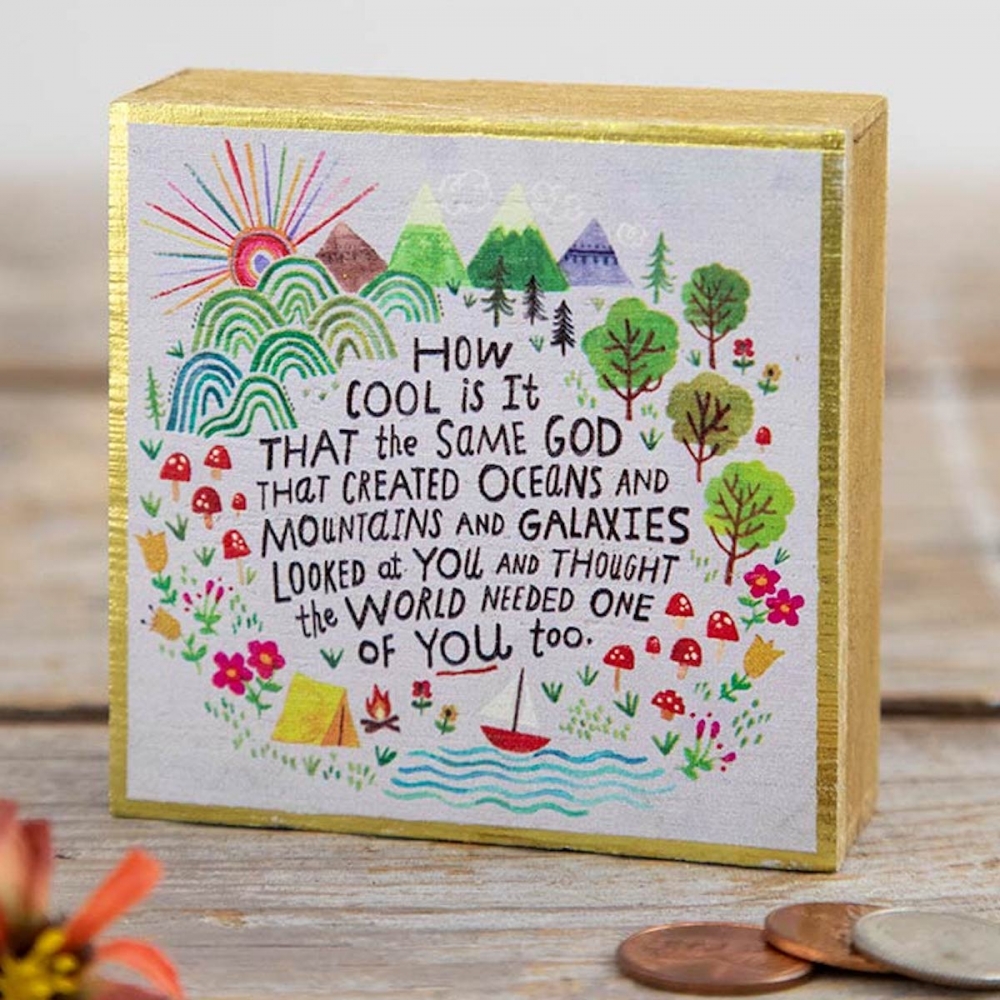 HOW
COOL is It
THAT the SAME GOD
THAT CREATED OCEANS AND
MOUNTAINS AND GALAXIES
LOOKED at YOU AND THOUGHT
the WORLD NEEDED ONE
OF YOU too.